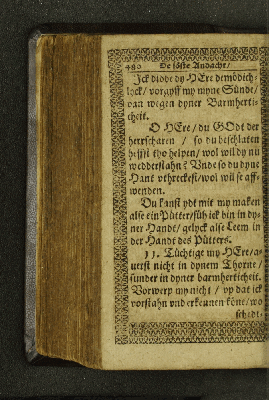 480 De söste Andacht/
Jck bidde dy HEre demödich-
lick/ vorgyff my myne Sünde/
van wegen dyner Barmherti-
cheit.
O HEre/ du GOdt der
herrscharen / so du beschlaten
heffst tho helpen/ wol wil dy nu
wedderstahn? Unde so du dyne
Hant vthreckest/ wol wil se aff-
wenden.
Du kanst ydt mit my maken
alse ein Pütter/ süh ick bin in dy-
ner Handt/ gelyck alse Leem in
der Handt des Pütters.
11. Tüchtige my HEre/ a-
uerst nicht in dynem Thorne/
sunder in dyner barmherticheit.
Vorwerp my nicht / vp dat ick
vorstahn vnd erkennen köne/ wo
schedt-